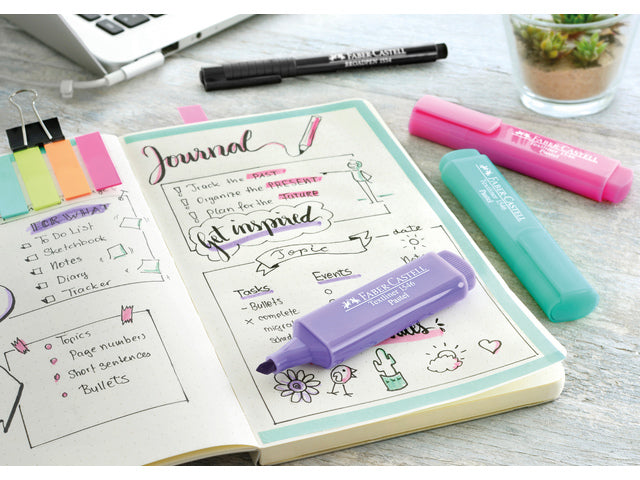 FABER CASTELL
BROADPEN 1554
FABER-CASTELL
Textliner 1546
Pastel
FABER-CASTELL
Textliner 1546
Pastel
FOR WHAT
To Do List
Sketchbook
Notes
Diary
Tracker
Topics
Page numbers
Short sentences
Bullets
Journal
! Track the PAST
! Organize the PRESENT
! Plan for the FUTURE
Get inspired
Topic
date
Tasks
Events
- Bullets
× complete
FABER-CASTELL
Textliner 1546
Pastel